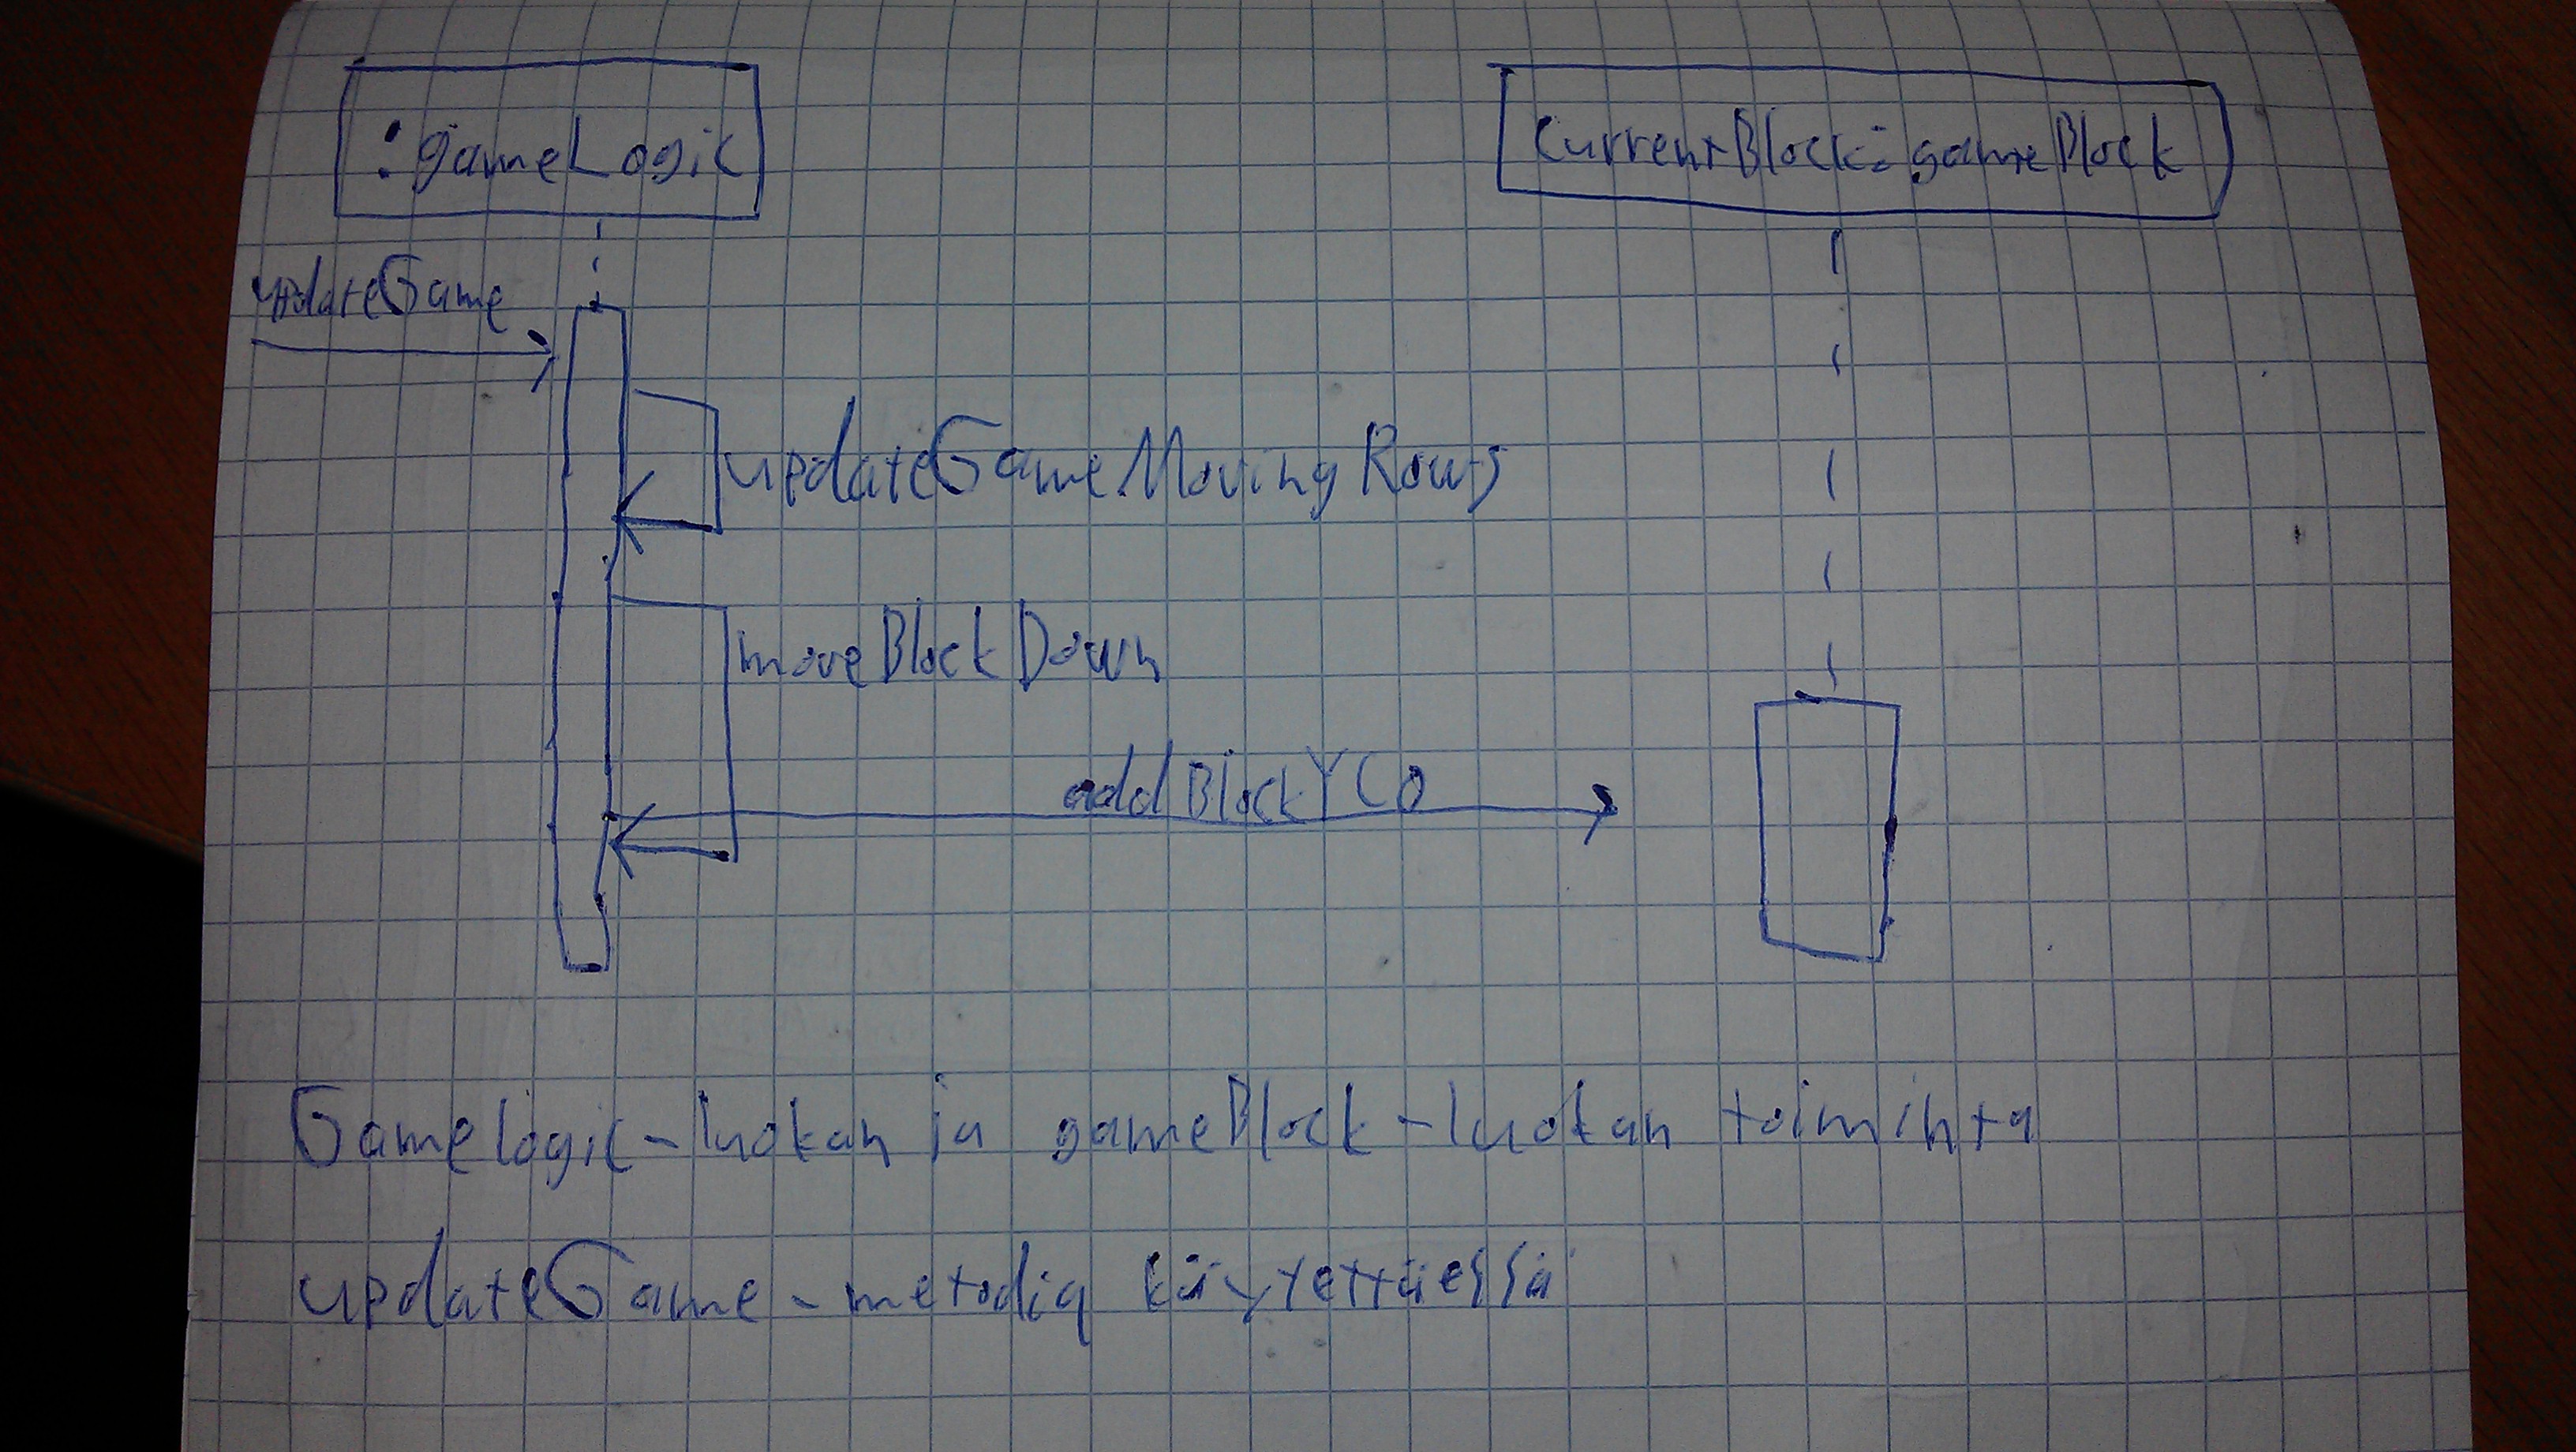 :gameLogic
currentBlock:gameBlock
updateGame
updateGameMovingRows
moveBlockDown
addBlockYCo
Gamelogic-luokan ja gameBlock-luokan toiminta
updateGame-metodia käytettäessä